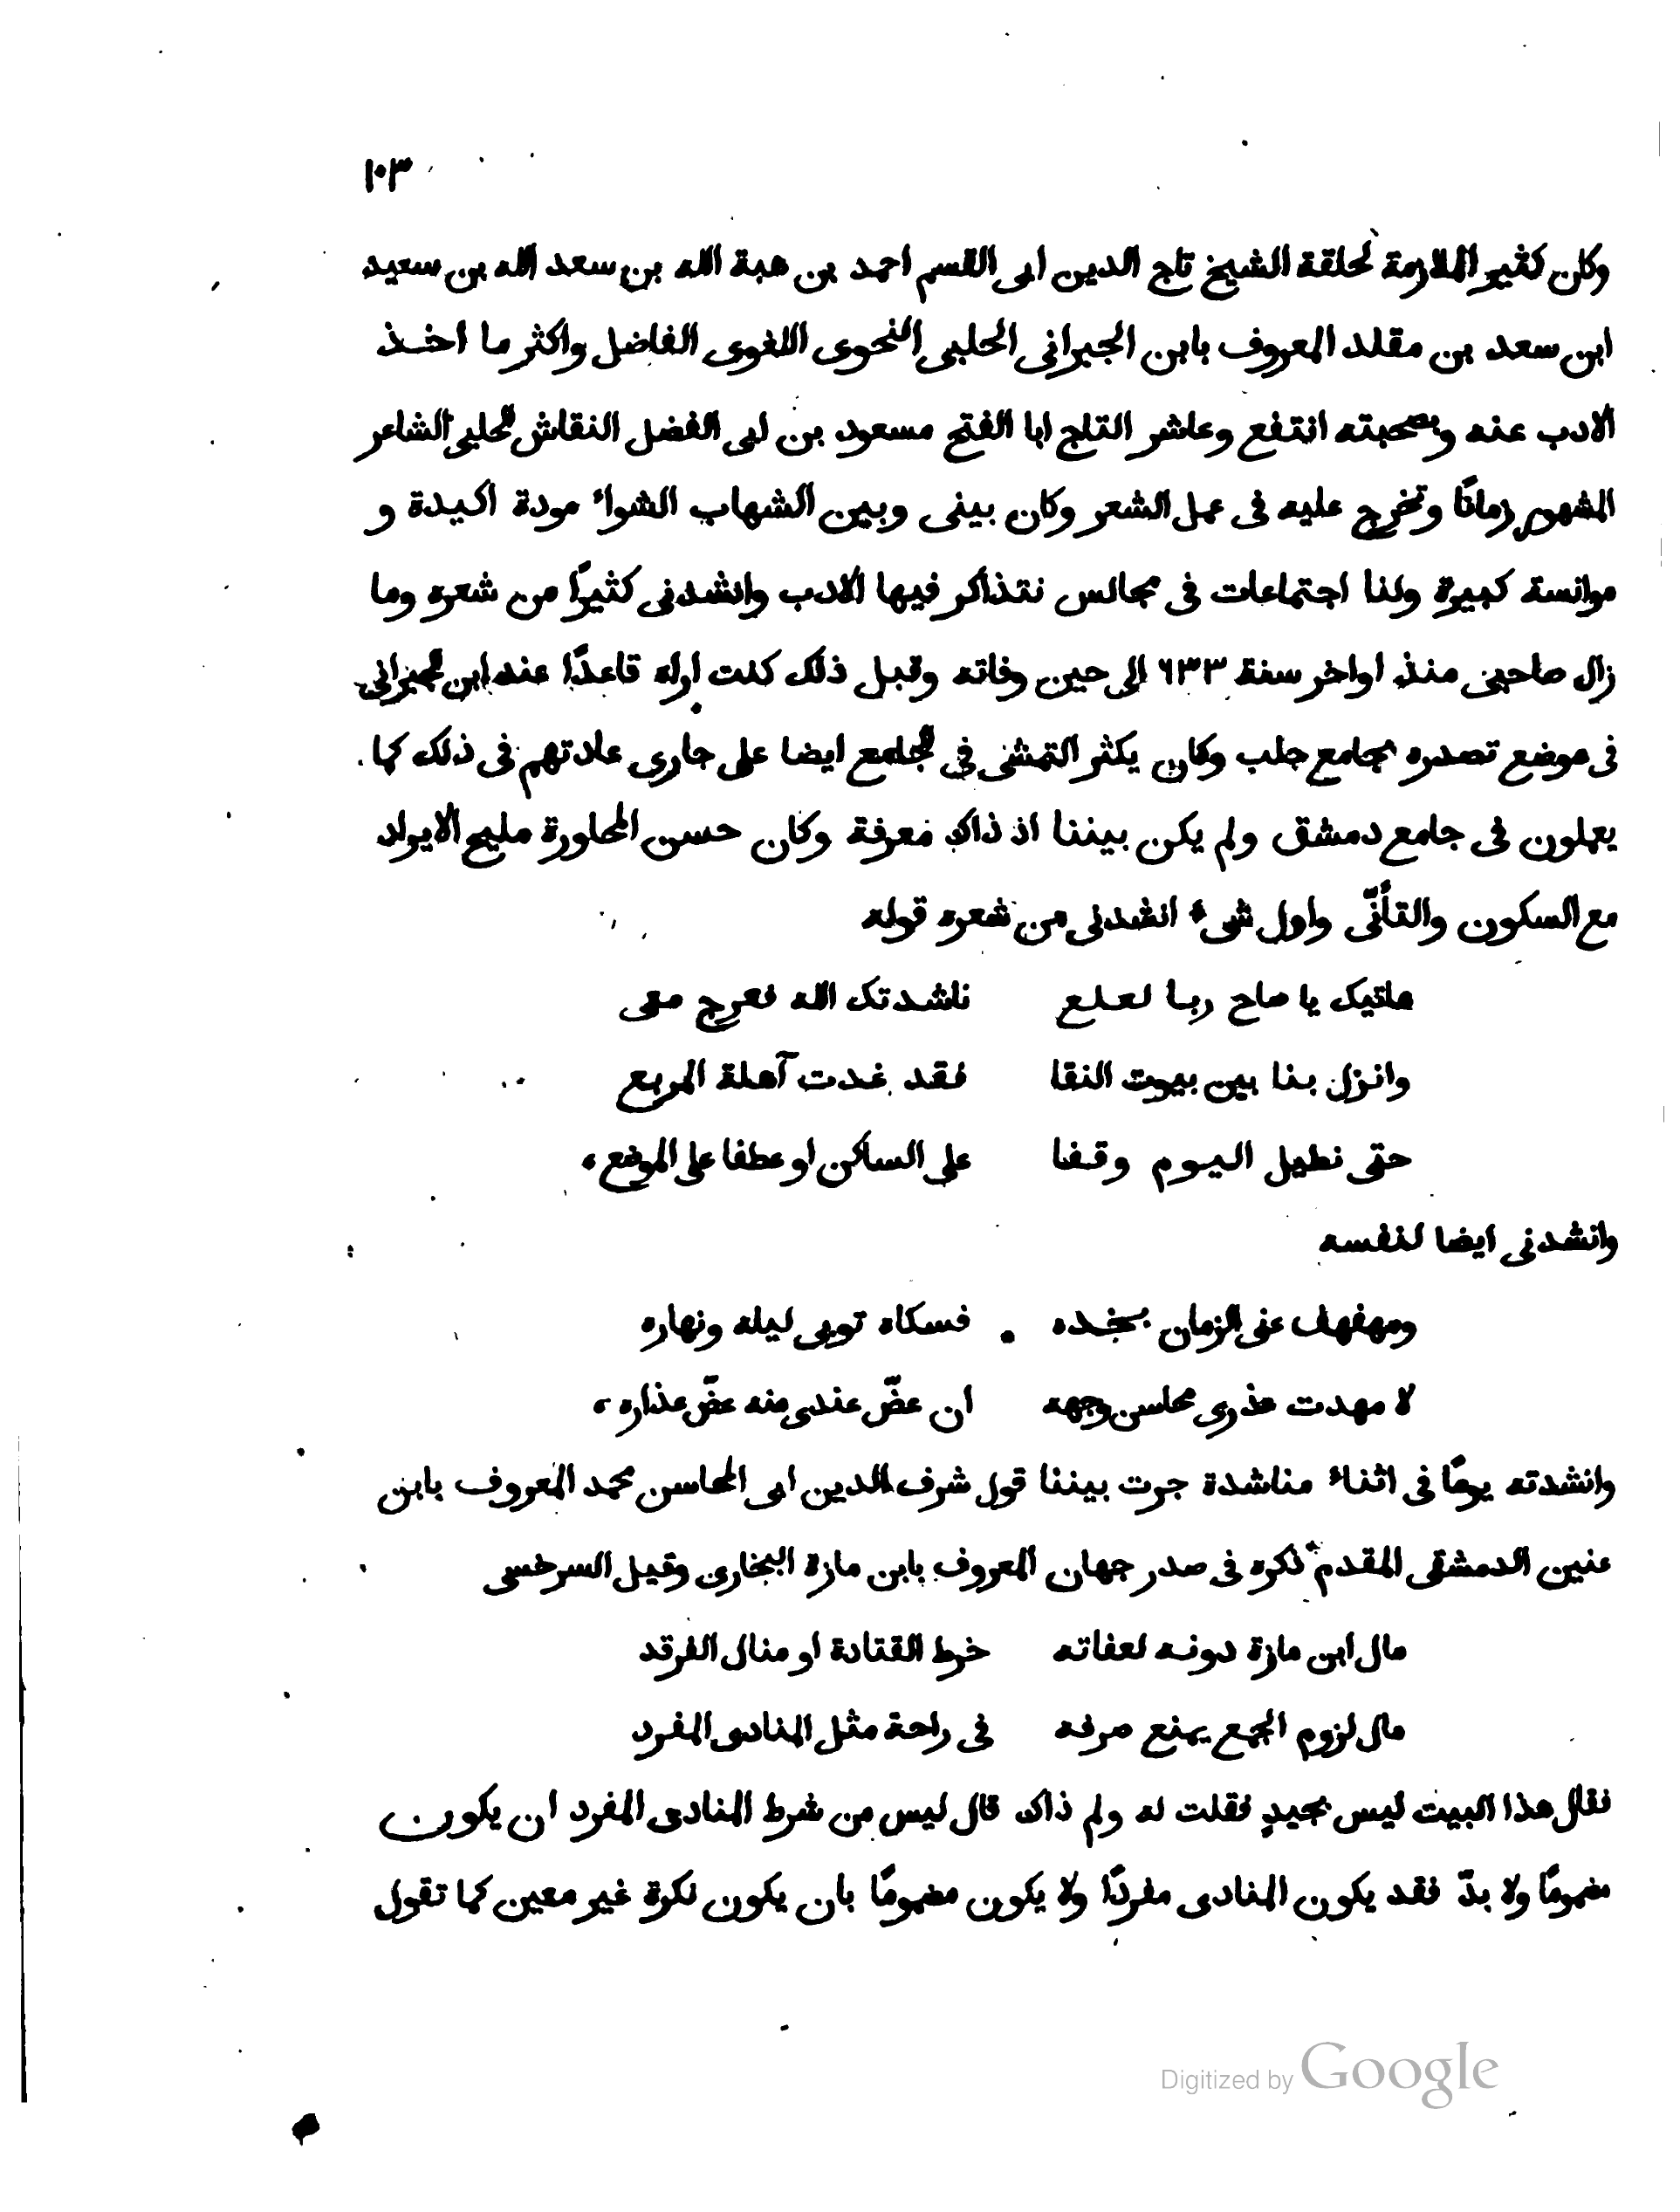 ١٠٣
وكان كثير الملازمة لحلقة الشيخ تاج الدين ابى القسم احمد بن هبة الله بن سعد الله بن سعيد
ابن سعد بن مقلد المعروف بابن الجبرانى الحلبى النحوى اللغوى الفاضل واكثر ما اخذ
الادب عنه وبصحبته انتفع وعاشر التاج ابا الفتح مسعود بن ابى الفضل النقاش الحلبى الشاعر
المشهور زمانًا وتخرج عليه فى عمل الشعر وكان بينى وبين الشهاب الشواء مودة اكيدة و
موانسة كبيرة ولنا اجتماعات فى مجالس نتذاكر فيها الادب وانشدنى كثيرًا من شعره وما
زال صاحبى منذ اواخر سنة ٦٣٣ الى حين وفاته وقبل ذلك كنت اراه قاعدًا عند ابن الجبرانى
فى موضع تصدره بجامع حلب وكان يكثر التمشى فى الجامع ايضا على جارى عادتهم فى ذلك كما
يعملون فى جامع دمشق ولم يكن بيننا اذ ذاك معرفة وكان حسن المحاورة مليح الايراد
مع السكون والتأنّى واول شىء انشدنى من شعره قوله
هاتيك يا صاح ربا لعلع ناشدتك الله فعرج معى
وانزل بنا بين بيوت النقا فقد غدت آهلة المربع
حتى نطيل اليوم وقفا على الساكن او عطفا على الموضع
وانشدنى ايضا لنفسه
ومهفهف عنى الزمان بخده فسكاه ثوبى ليله ونهاره
لا مهدت عذرى محاسن وجهه ان غضّ عندى منه غضّ عذاره
وانشدته يومًا فى اثناء مناشدة جرت بيننا قول شرف الدين ابى المحاسن محمد المعروف بابن
عنين الدمشقى المقدم ذكره فى صدر جهان المعروف بابن مازة البخارى وقيل السرخسى
مال ابن مازة دونه لعفاته خرط القتادة او منال الفرقد
مال لزوم الجمع يمنع صرفه فى راحة مثل المنادى المفرد
فقال هذا البيت ليس بجيدٍ فقلت له ولم ذاك قال ليس من شرط المنادى المفرد ان يكون
مضمومًا ولا بدّ فقد يكون المنادى مفردًا ولا يكون مضمومًا بان يكون نكرة غير معين كما تقول
Digitized by Google